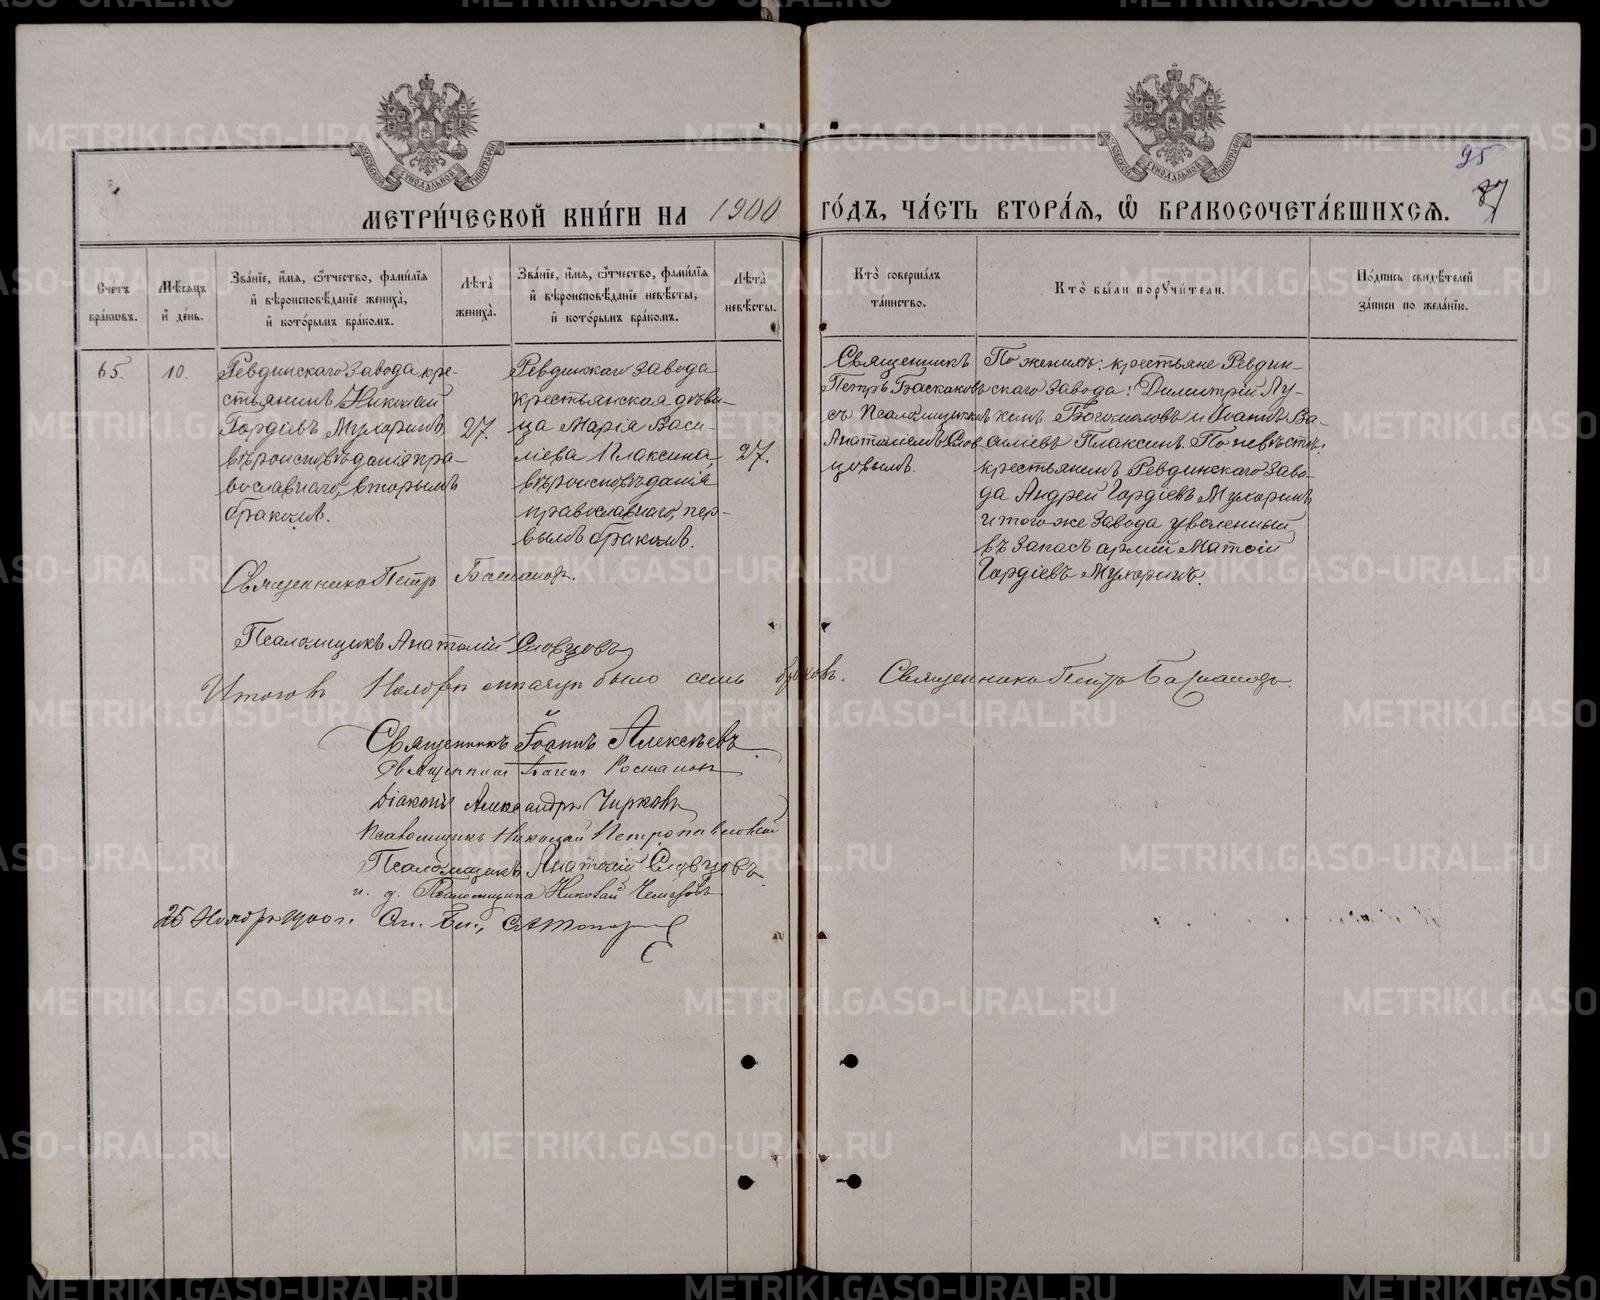 МЕТРИ́ЧЕСКОЙ КНИ́ГИ НА 1900 ГО́ДЪ, ЧА́СТЬ ВТОРА́Я, Ѽ БРАКОСОЧЕТА́ВШИХСЯ.
95
87
Сче́тъ бра́ковъ.
Мѣ́сяцъ и де́нь.
Зва́нїе, и́мя, ѻ́тчество, фами́лїя и҆ вѣроисповѣ́данїе жениха̀, и҆ кото́рымъ бра́комъ.
Лѣта̀ жениха̀.
Зва́нїе, и́мя, ѻ́тчество, фами́лїя и҆ вѣроисповѣ́данїе невѣ́сты, и҆ кото́рымъ бра́комъ.
Лѣта̀ невѣ́сты.
Кто̀ соверша́лъ та́инство.
Кто̀ бы́ли порꙋчи́тели.
По́дпись свидѣ́телей за́писи по жела́нїю.
65.
10.
Ревдинскаго Завода кре-
стьянинъ Николай
Гордіевъ Мухоринъ
вѣроисповѣданія пра-
вославнаго, вторымъ
бракомъ.
27.
Ревдинскаго Завода
крестьянская дѣви-
ца Марія Васи-
ліева Плаксина,
вѣроисповѣданія
православнаго, пер-
вымъ бракомъ.
27.
Священникъ
Петръ Баскаковъ
съ Псаломщикомъ
Анатоліемъ Слов
цовымъ.
По женихѣ: крестьяне Ревдин-
скаго Завода: Димитрій Лу-
кинъ Богомоловъ и Іоаннъ Ва-
силіевъ Плаксинъ. По невѣстѣ:
крестьянинъ Ревдинскаго Заво-
да Андрей Гордіевъ Мухоринъ
и того же Завода уволенный
въ запасъ арміи Матѳій
Гордіевъ Мухоринъ.
Священникъ Петръ Баскаковъ.
Псаломщикъ Анатолій Словцовъ
Итого въ Ноябрѣ мѣсяцѣ было семь браковъ. Священникъ Петръ Баскаковъ.
Священникъ Іоаннъ Алексѣевъ
Священникъ
Діаконъ Александръ Чирковъ
Псаломщикъ Николай Петропавловскій
Псаломщикъ Анатолій Словцовъ
и. д. Псаломщика Николай
25 Ноября 1900 г.
METRIKI.GASO-URAL.RU